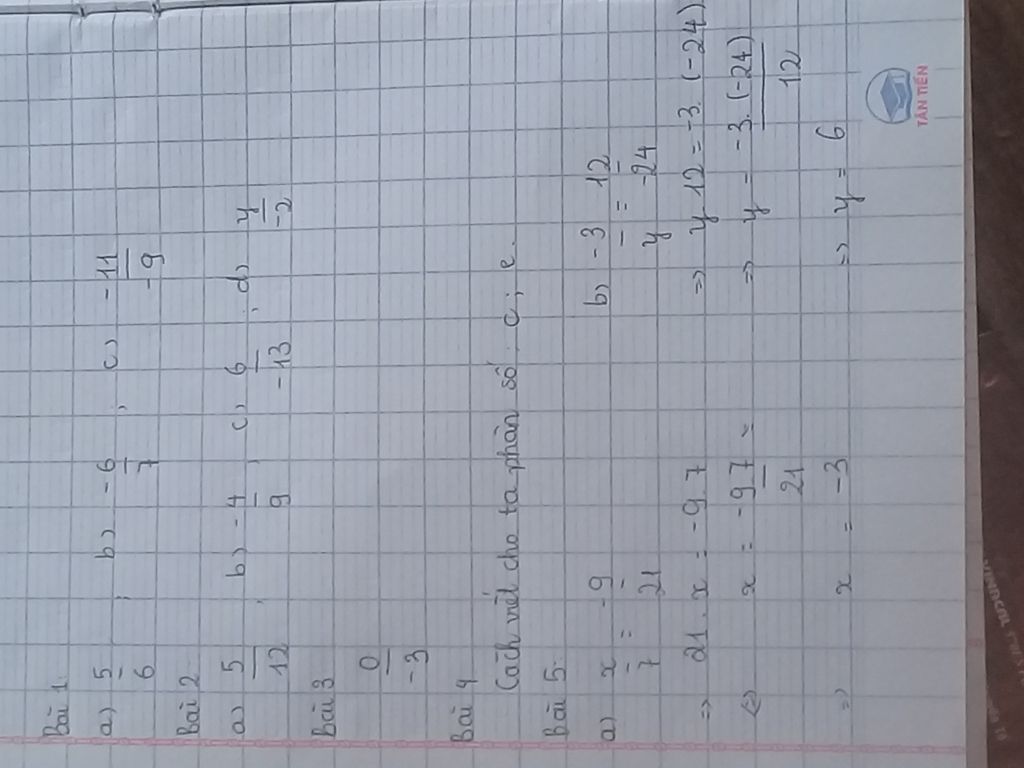 Bài 1
a) 5/6 ; b) -6/7 ; c) -11/-9
Bài 2
a) 5/12 ; b) -4/9 ; c) 6/-13 ; d) y/-2
Bài 3
0/-3
Bài 4
Cách viết cho ta phân số : c ; e.
Bài 5.
a) x/7 = -9/21 b) -3/y = 12/-24
=> 21 . x = -9 . 7 => y . 12 = -3 . (-24)
<=> x = -9 . 7/21 = => y = -3 . (-24)/12
=> x = -3 => y = 6
TÂN TIẾN